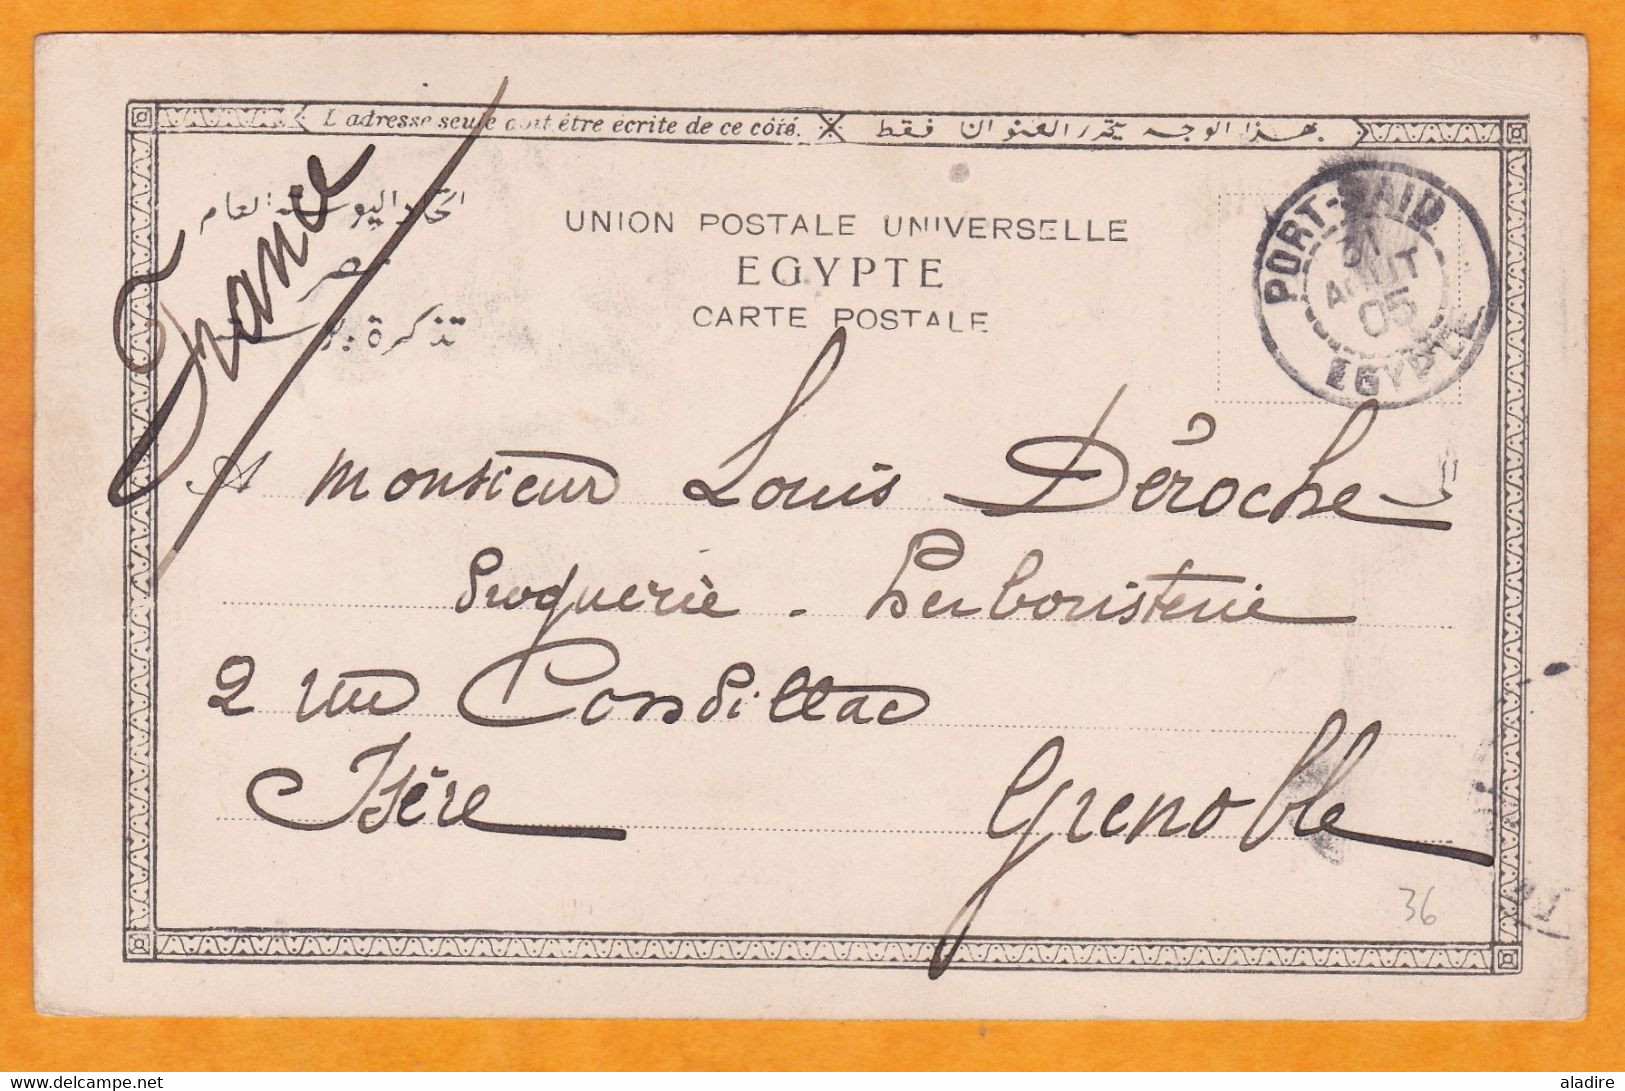 L'adresse seule doit être écrite de ce côté. بهذا الوجه يتحرر العنوان فقط
اتحاد البوستة العام
مصر
تذكرة بوستة
UNION POSTALE UNIVERSELLE
EGYPTE
CARTE POSTALE
PORT-SAID
31
AOUT
05
EGYPTE
France
A Monsieur Louis Déroche
Droguerie - Herboristerie
2 rue Condillac
Isère Grenoble
36
www.delcampe.net
aladire